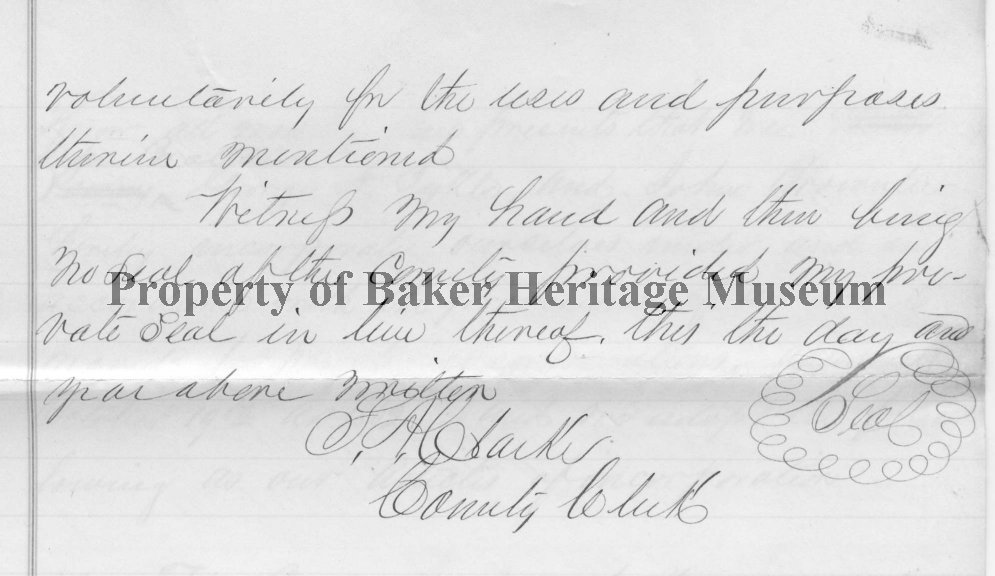 voluntarily for the uses and purposes
therein mentioned
Witness my hand and there being
no Seal of the County provided my pri-
vate Seal in lieu thereof. this the day and
year above written
Seal
Clarke
County Clerk
Property of Baker Heritage Museum